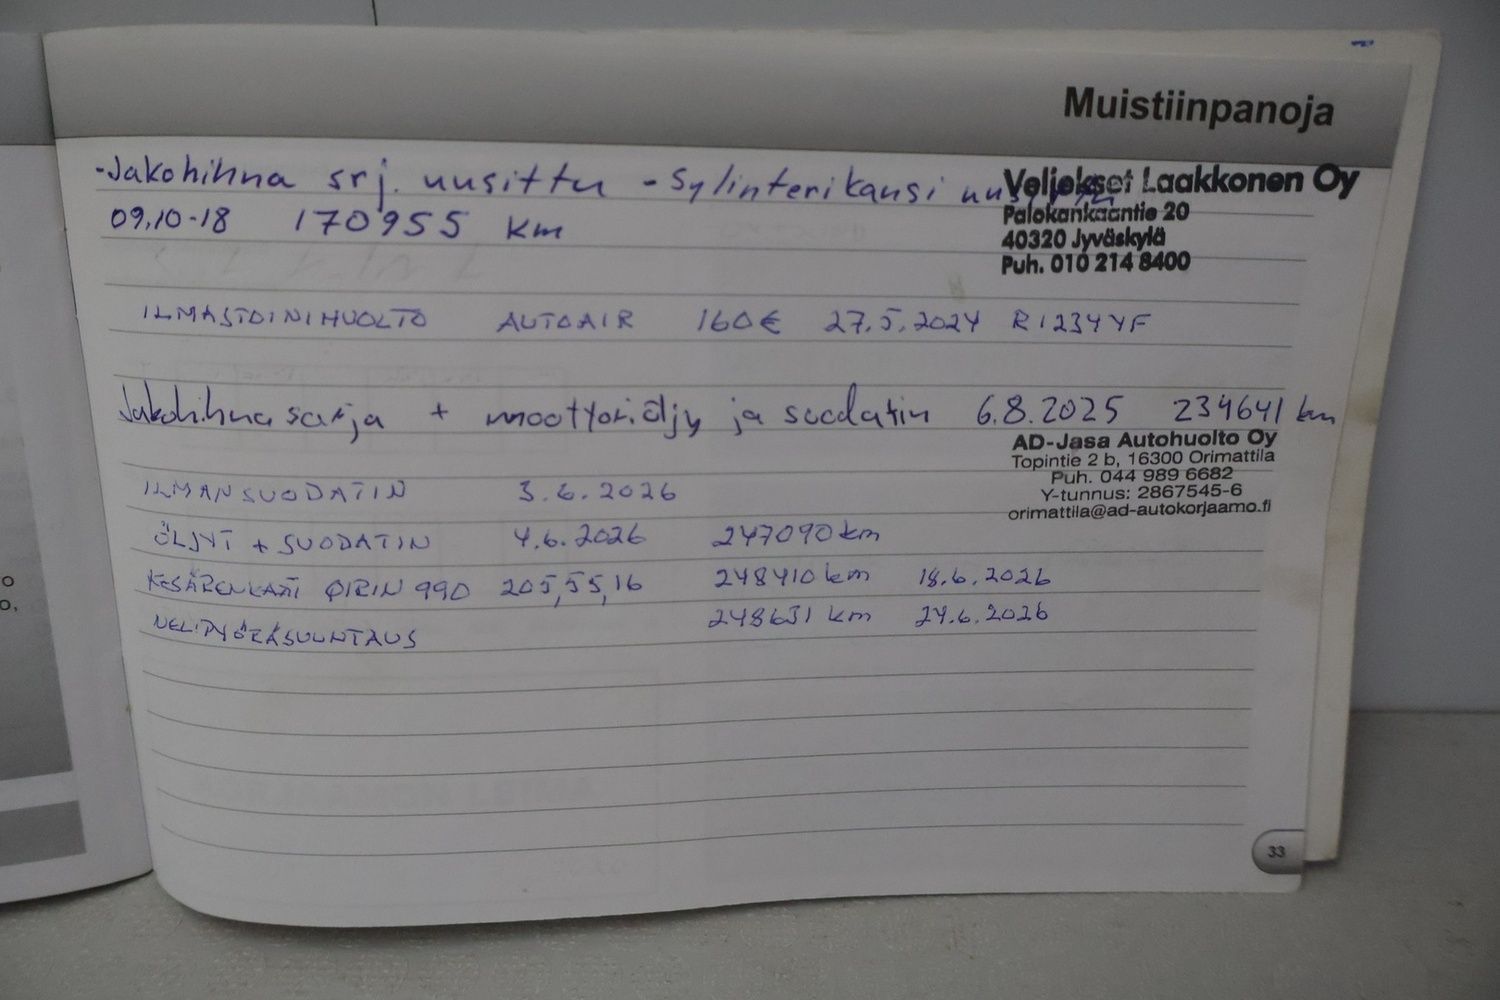 Muistiinpanoja
-Jakohihna srj. uusittu - Sylinterikansi
Veljekset Laakkonen Oy
Palokankaantie 20
40320 Jyväskylä
Puh. 010 214 8400
09.10-18 170955 km
ILMASTOINIHUOLTO AUTOAIR 160€ 27.5.2024 R1234YF
Jakohihnasarja + moottoriöljy ja suodatin 6.8.2025 234641 km
AD-Jasa Autohuolto Oy
Topintie 2 b, 16300 Orimattila
Puh. 044 989 6682
Y-tunnus: 2867545-6
orimattila@ad-autokorjaamo.fi
ILMANSUODATIN 3.6.2026
ÖLJYT + SUODATIN 4.6.2026 247090 km
KESÄRENKAAT QIRIN 990 205,55,16 248410 km 18.6.2026
NELIPYÖRÄSUUNTAUS 248631 km 24.6.2026
33
o
o,